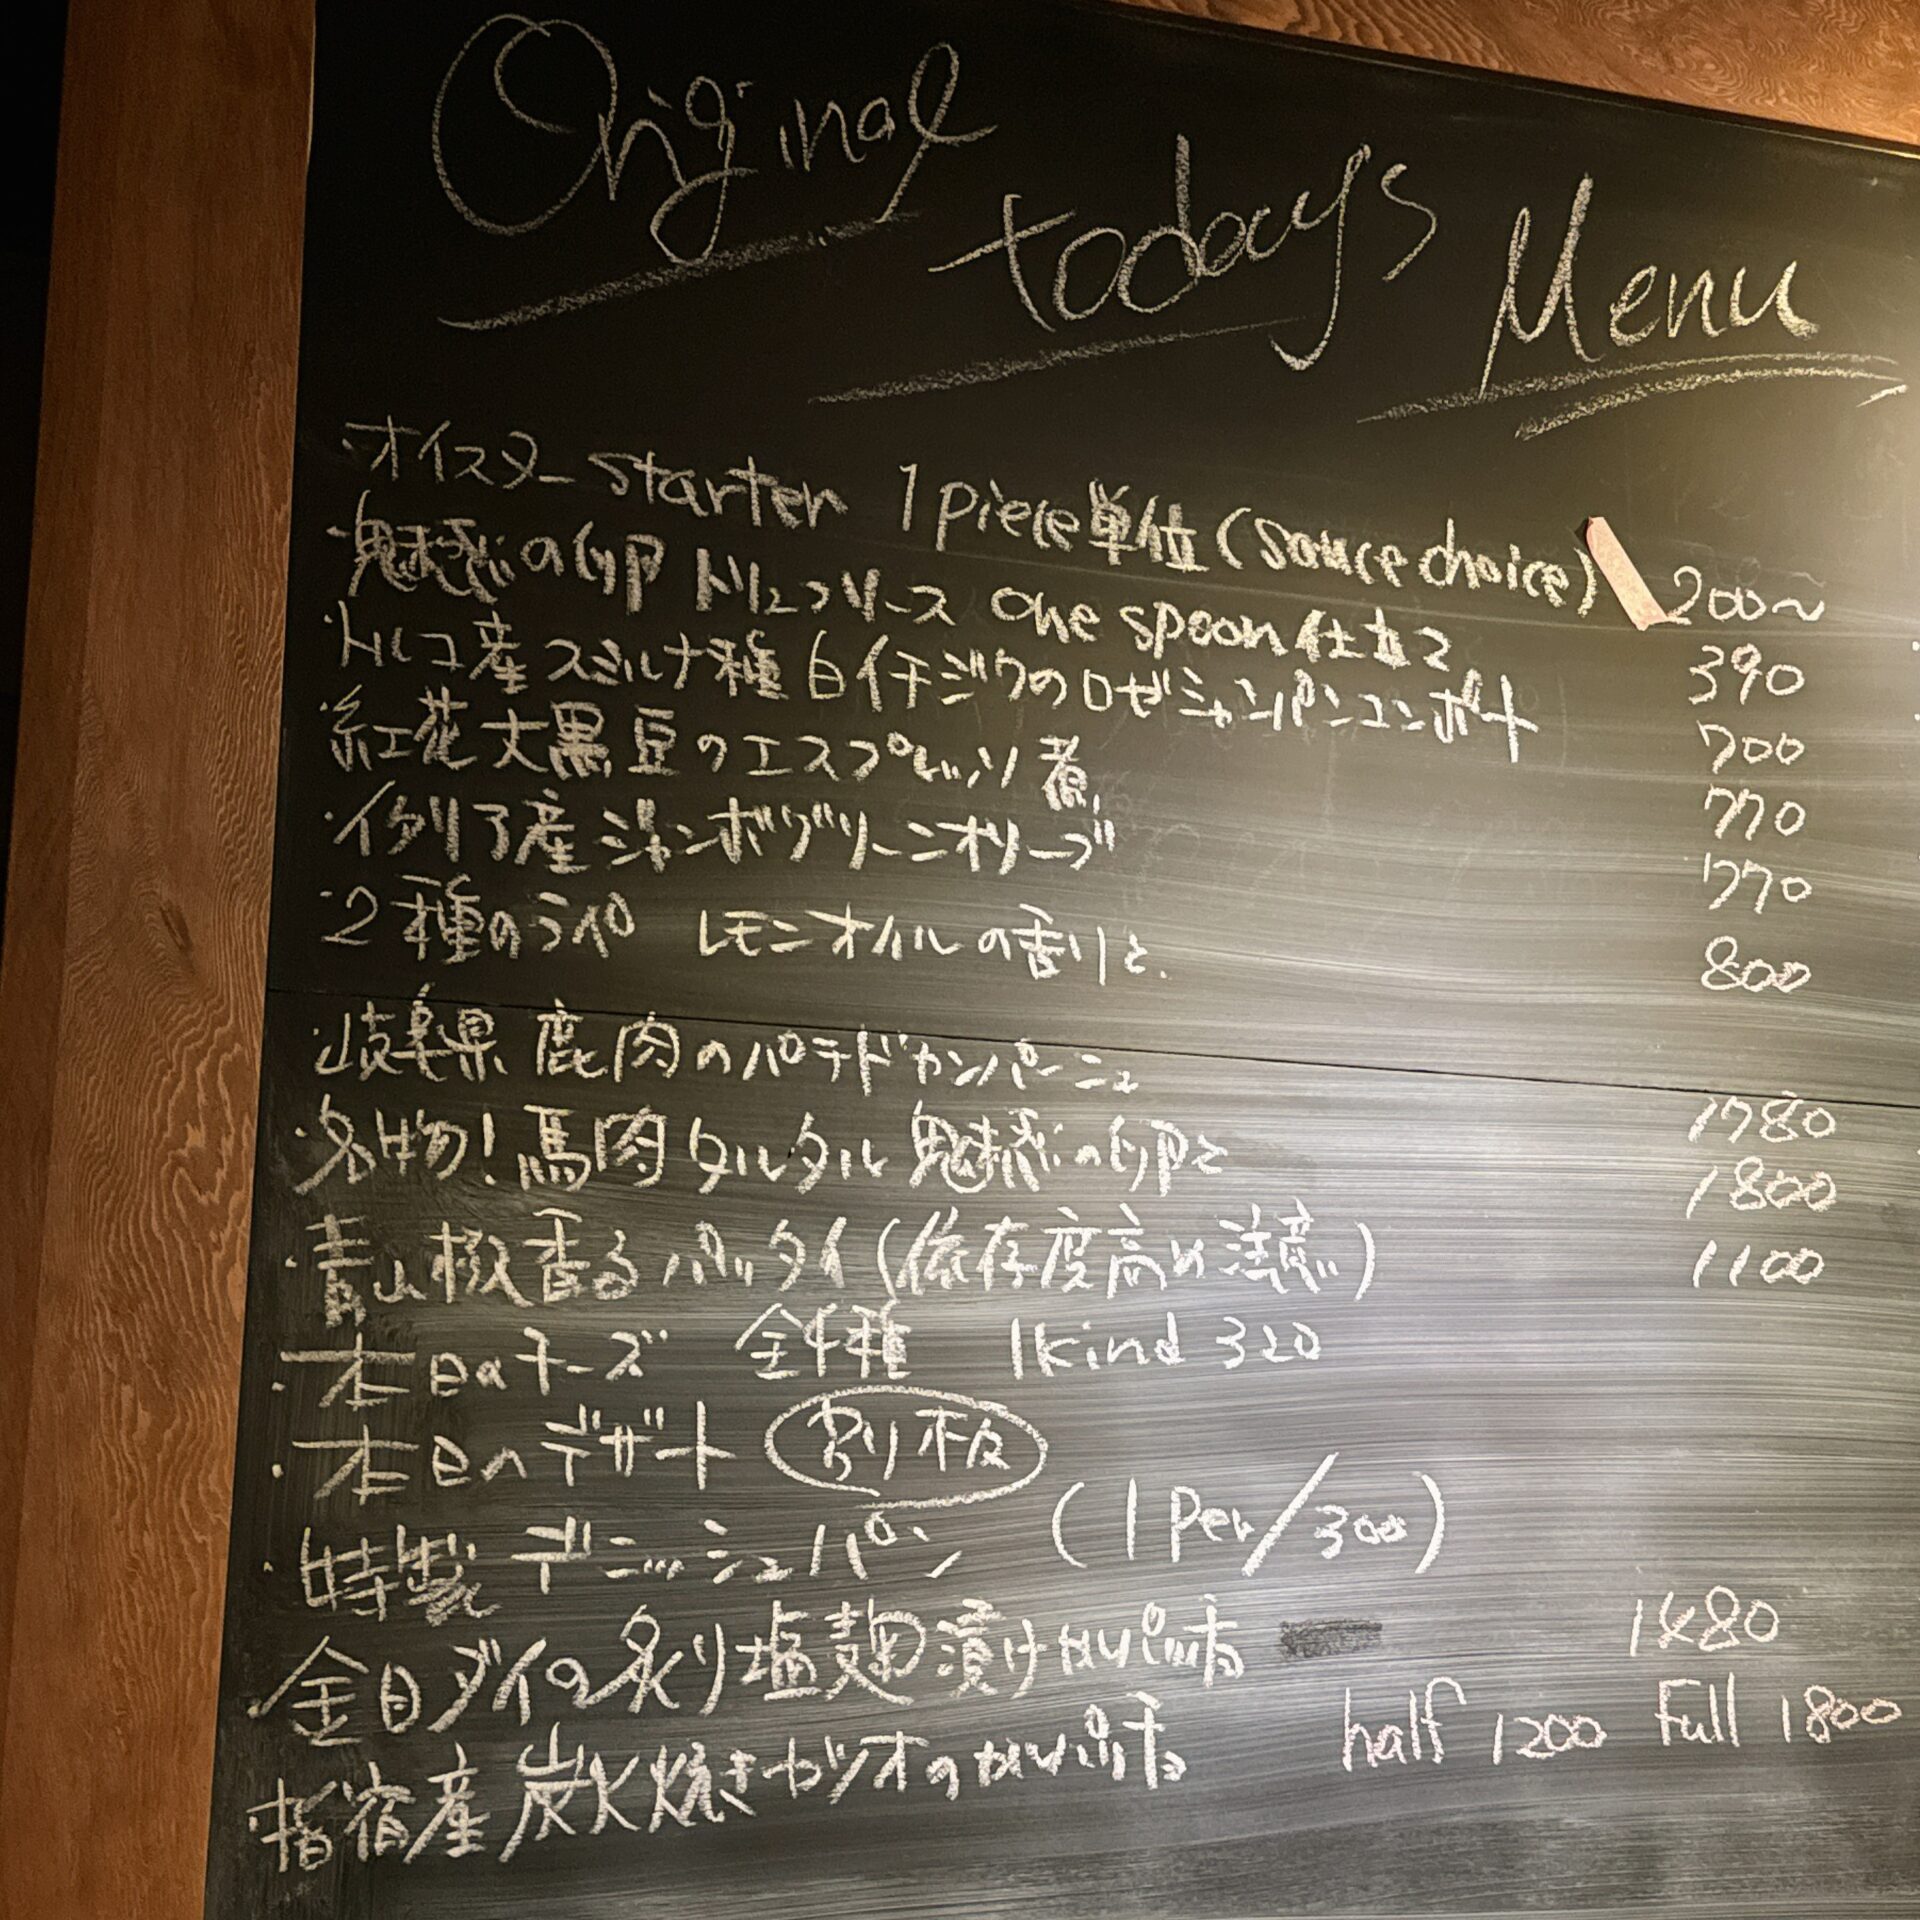 Original today's Menu
・オイスター starter 1 piece単位(sauce choice) 200〜
・魅惑の卵 トリュフソース one spoon仕立て 390
・トルコ産 スミルナ種 白イチジクのロゼシャンパンコンポート 700
・紅花大黒豆のエスプレッソ煮 770
・イタリア産 ジャンボグリーンオリーブ 770
・2種のラペ レモンオイルの香りと. 800
・岐阜県 鹿肉のパテドカンパーニュ 1780
・名物!馬肉タルタル 魅惑の卵と 1800
・青山椒香る パッタイ(依存度高め注意) 1100
・本日のチーズ 全4種 1kind 320
・本日のデザート 別板
・特製 デニッシュパン (1 Per/300)
・金目ダイの炙り塩麹漬け 1480
・指宿産 炭火焼きカツオの half 1200 Full 1800